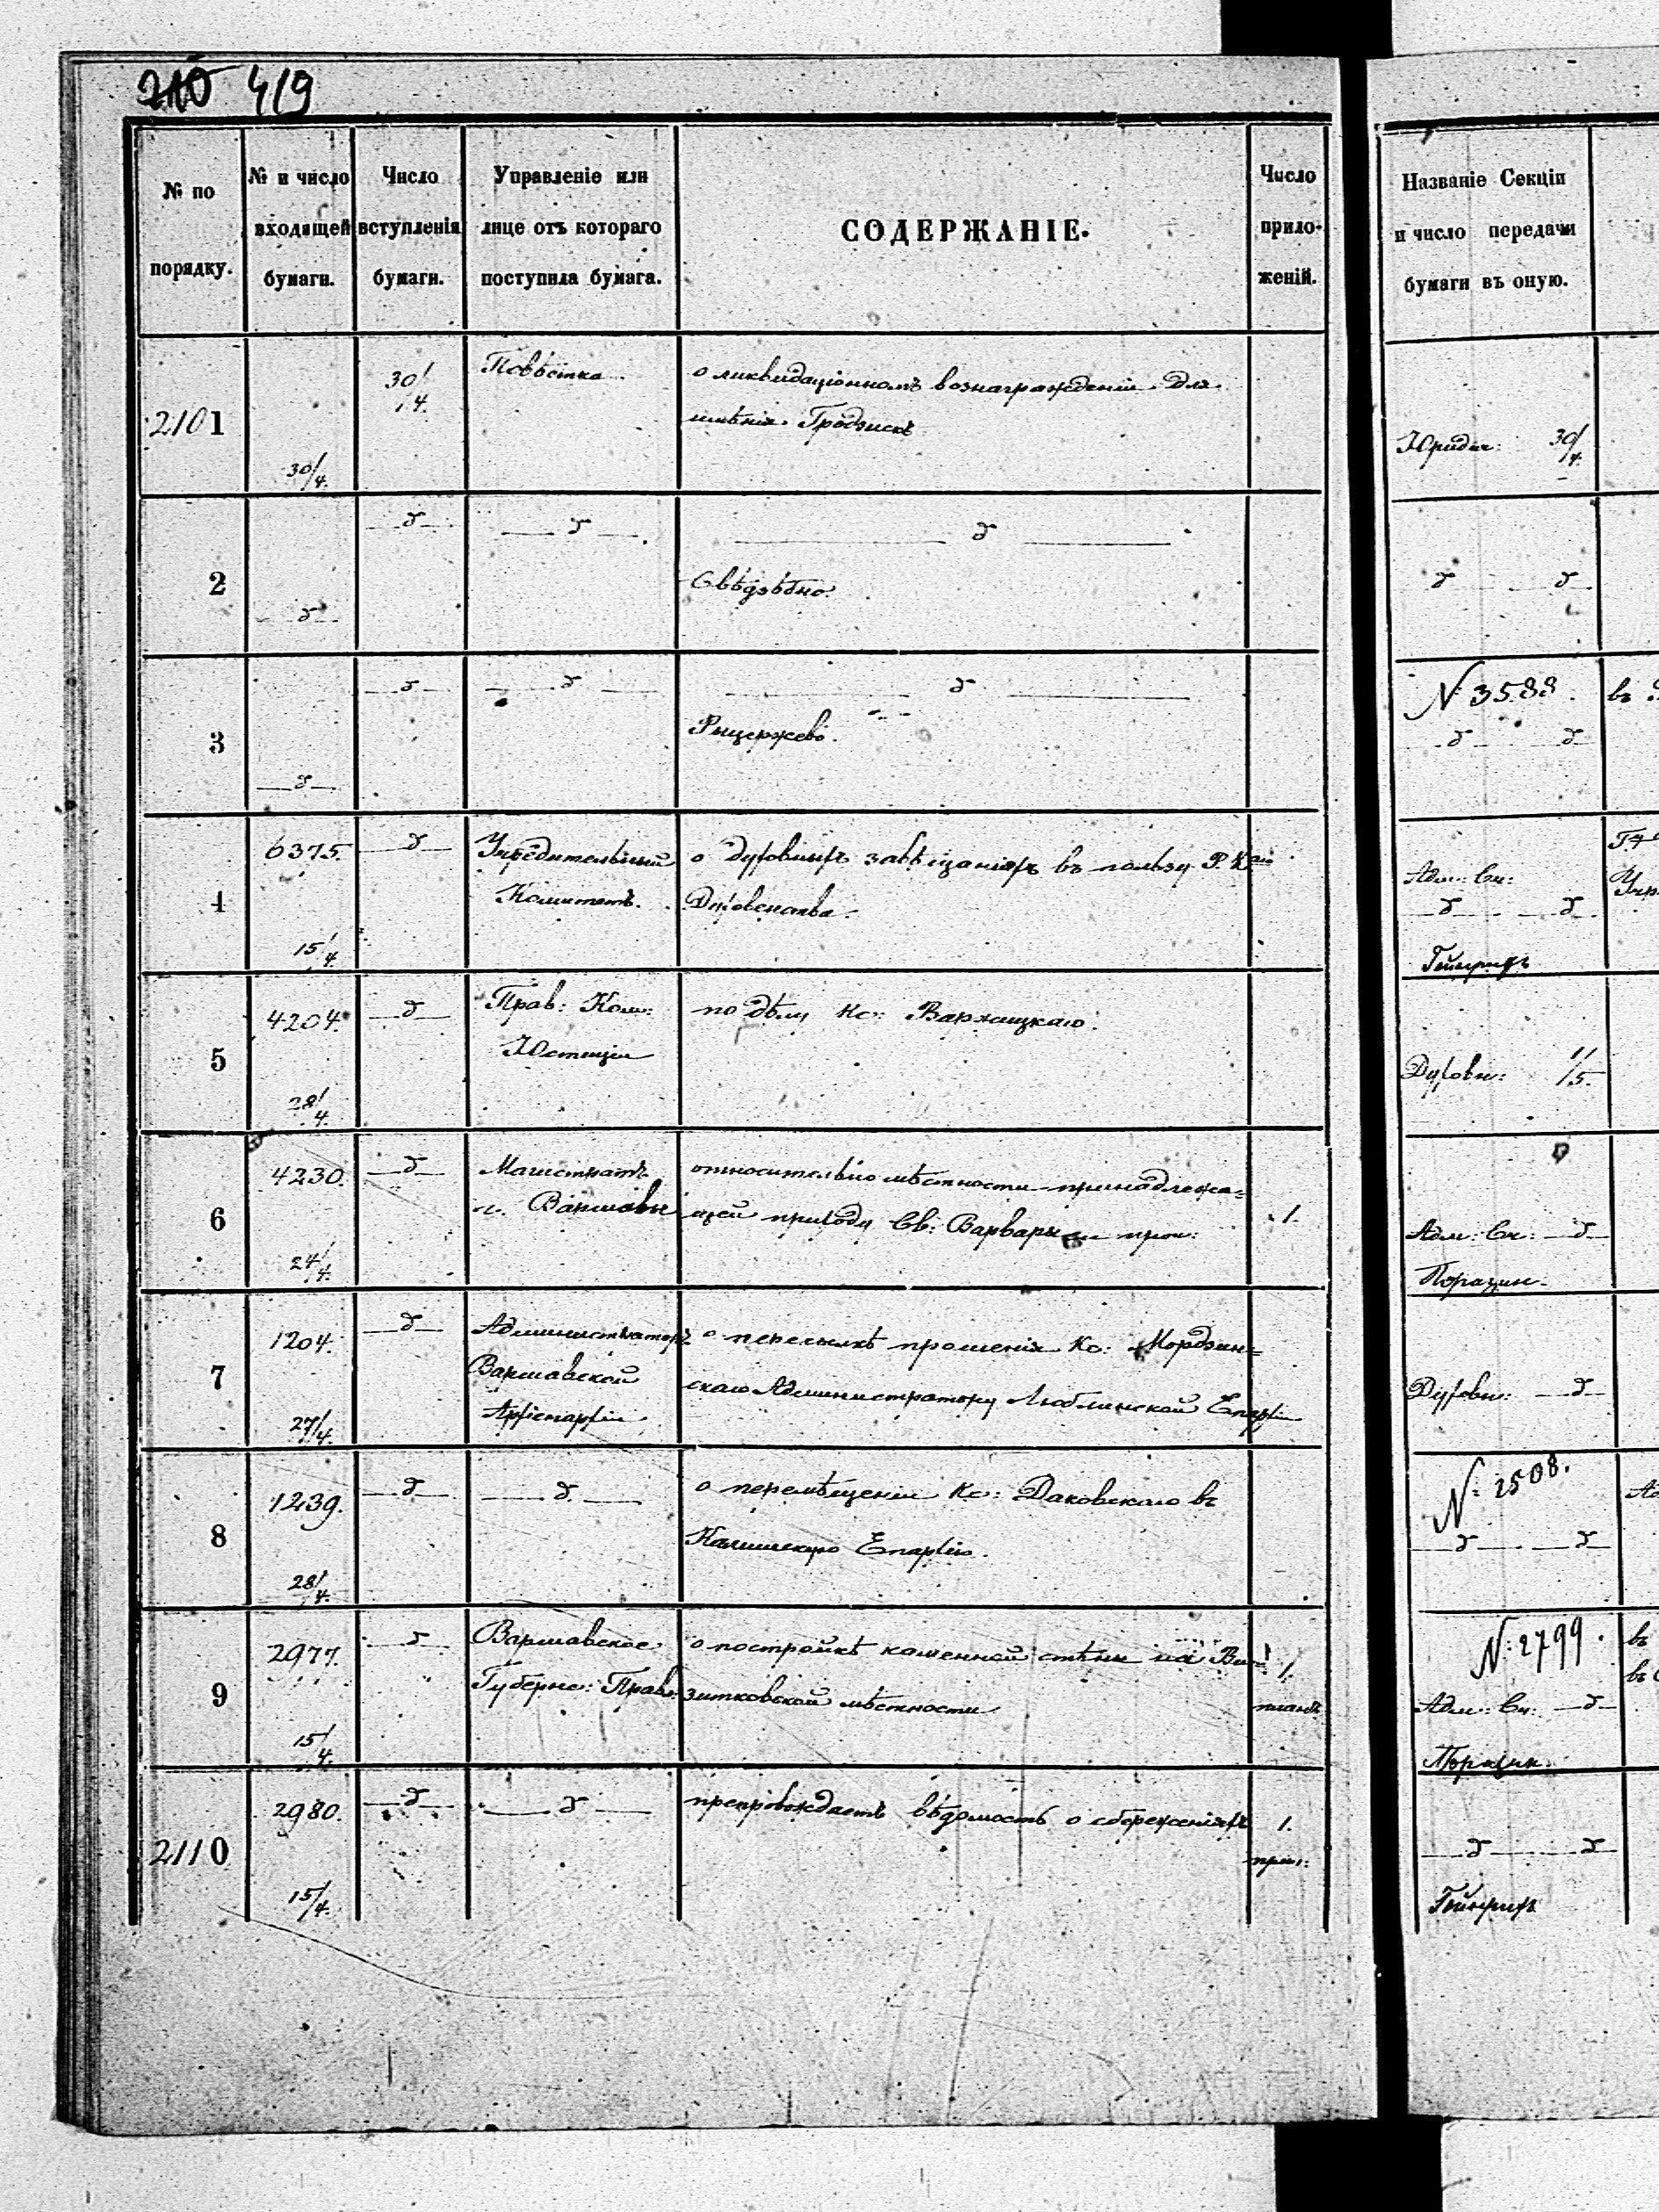 210 419
№ по порядку.
№ и число входящей бумаги.
Число вступленія бумаги.
Управленіе или лице отъ котораго поступила бумага.
СОДЕРЖАНІЕ.
Число приложеній.
Названіе Секціи и число передачи бумаги въ оную.
2101
30/4.
30/4.
Повѣстка
о ликвидаціонномъ вознагражденіи для
имѣнія Гродзискъ
Юридич: 30/4.
2
3
Рыцержево.
№ 3588. въ
4
6375.
15/4.
Учредительный
Комитетъ.
о духовныхъ завѣщаніяхъ въ пользу Р. К.
Духовенства.
Адм: Си:
Гейнрихъ
5
4204.
28/4.
Прав: Ком:
Юстиціи
по дѣлу Кс:
Духовн: 1/5.
6
4230.
24/4.
Магистратъ
г. Варшавы
относительно мѣстности принадлежа=
щей приходу Св: Варвары и проч:
1.
Адм: Си: д
7
1204.
27/4.
Администраторъ
Варшавской
Архіепархіи
о пересылкѣ прошенія Кс: Мордзин=
скаго Администратору Люблинской Епархіи
Духовн: д
8
1239.
28/4.
о перемѣщеніи Кс: Даковскаго въ
Калишскую Епархію.
№ 2508.
9
2977.
15/4.
Варшавское
Губернс: Правл:
о постройкѣ каменной стѣны на Ви=
зитковской мѣстности
1.
планъ
№: 2799. въ
Адм: Си: д
2110
2980.
15/4.
препровождаетъ вѣдомость о сбереженіяхъ
1.
прил:
Гейнрихъ